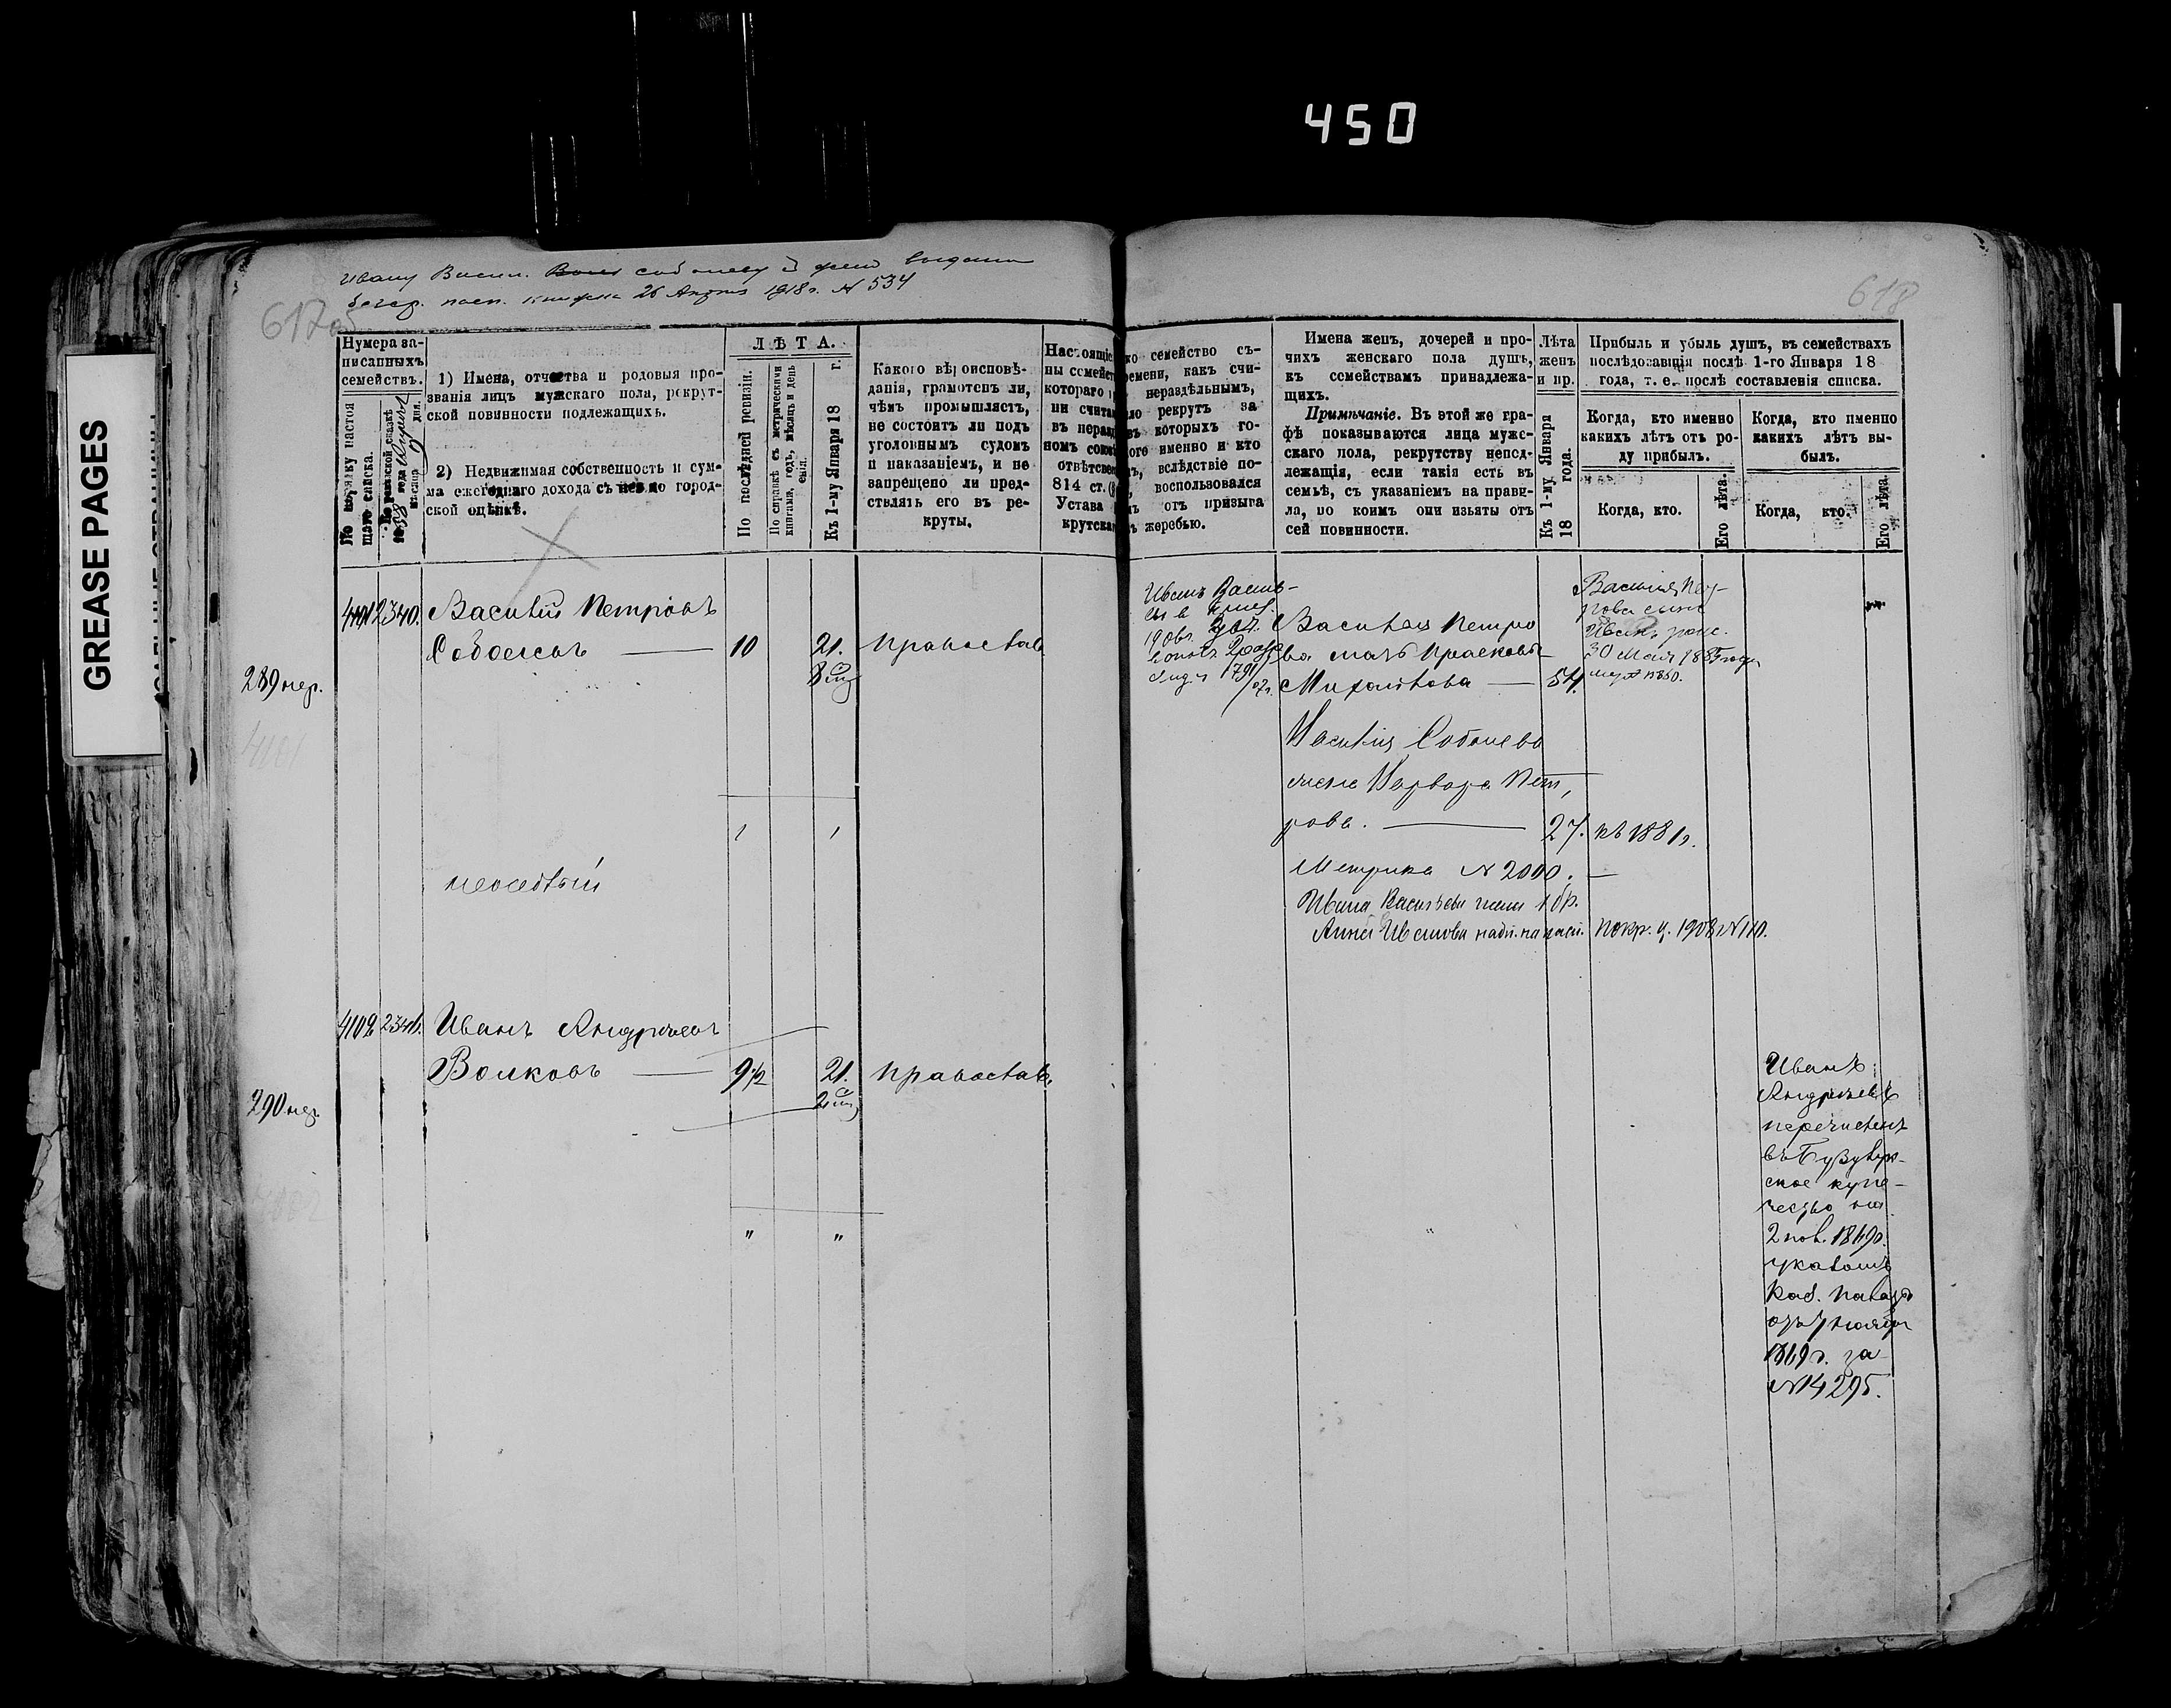 450
GREASE PAGES
Ивану Васил. Соболеву
26 Апреля 1918 г. № 534
617об
618
Нумера за-
писанныхъ
семействъ.
По порядку настоя
щаго списка.
По ревизской сказкѣ
1858 года
мѣсяца дня.
1) Имена, отчества и родовыя про-
званія лицъ мужскаго пола, рекрут-
ской повинности подлежащихъ.
2) Недвижимая собственность и сум-
ма ежегоднаго дохода съ нея по город-
ской оцѣнкѣ.
ЛѢТА.
По послѣдней ревизіи.
По справкѣ съ метрическими
книгами, годъ, мѣсяцъ и день
Къ 1-му Января 18 г.
Какого вѣроисповѣ-
данія, грамотенъ ли,
чѣмъ промышляетъ,
не состоитъ ли подъ
уголовнымъ судомъ
и наказаніемъ, и не
запрещено ли пред-
ставлять его въ ре-
круты.
Настоящіе
ны семейст
котораго
ни счита
въ нераз
номъ союз
отвѣтств
814 ст.
Устава
крутска
ко семейство съ-
ремени, какъ счи-
нераздѣльнымъ,
ло рекрутъ за
въ которыхъ го-
кого именно и кто
ъ, вслѣдствіе по-
воспользовался
отъ призыва
ъ жеребью.
Имена женъ, дочерей и про-
чихъ женскаго пола душъ,
къ семействамъ принадлежа-
щихъ.
Примѣчаніе. Въ этой же гра-
фѣ показываются лица мужс-
скаго пола, рекрутству непод-
лежащія, если такія есть въ
семьѣ, съ указаніемъ на прави-
ла, по коимъ они изъяты отъ
сей повинности.
Лѣта
женъ
и пр.
Къ 1-му Января
18 года.
Прибыль и убыль душъ, въ семействахъ
послѣдовавшія послѣ 1-го Января 18
года, т. е. послѣ составленія списка.
Когда, кто именно
какихъ лѣтъ отъ ро-
ду прибылъ.
Когда, кто именно
какихъ лѣтъ вы-
былъ.
Когда, кто.
Его лѣта.
Когда, кто.
Его лѣта.
4101 2340. Василій Петровъ
Соболевъ — 10 21. православ.
289 нер.
4101
неоседлый
Иванъ Василь-
Василья Петро
ва мать Прасковья
Михайлова — 54.
Василья Пет-
рова сынъ
Иванъ
30 Мая 1885 года
Василія Соболева
жена Варвара Пет,
рова. — 27. къ 1881 г.
Метрика № 2000. —
Ивана Васильева жена 1 бр.
Анна Иванова Покр. ц. 1908 № 110.
4102 2341. Иванъ Андреевъ
Волковъ — 9 1/2 21. православ.
290 нер.
4102
" " "
Иванъ
Андреевъ
перечисленъ
въ Бузулук-
ское купе-
чество на
2 пов. 1869 г.
указомъ
Каз. Палаты
отъ 7 ноября
1869 г. за
№ 14295.